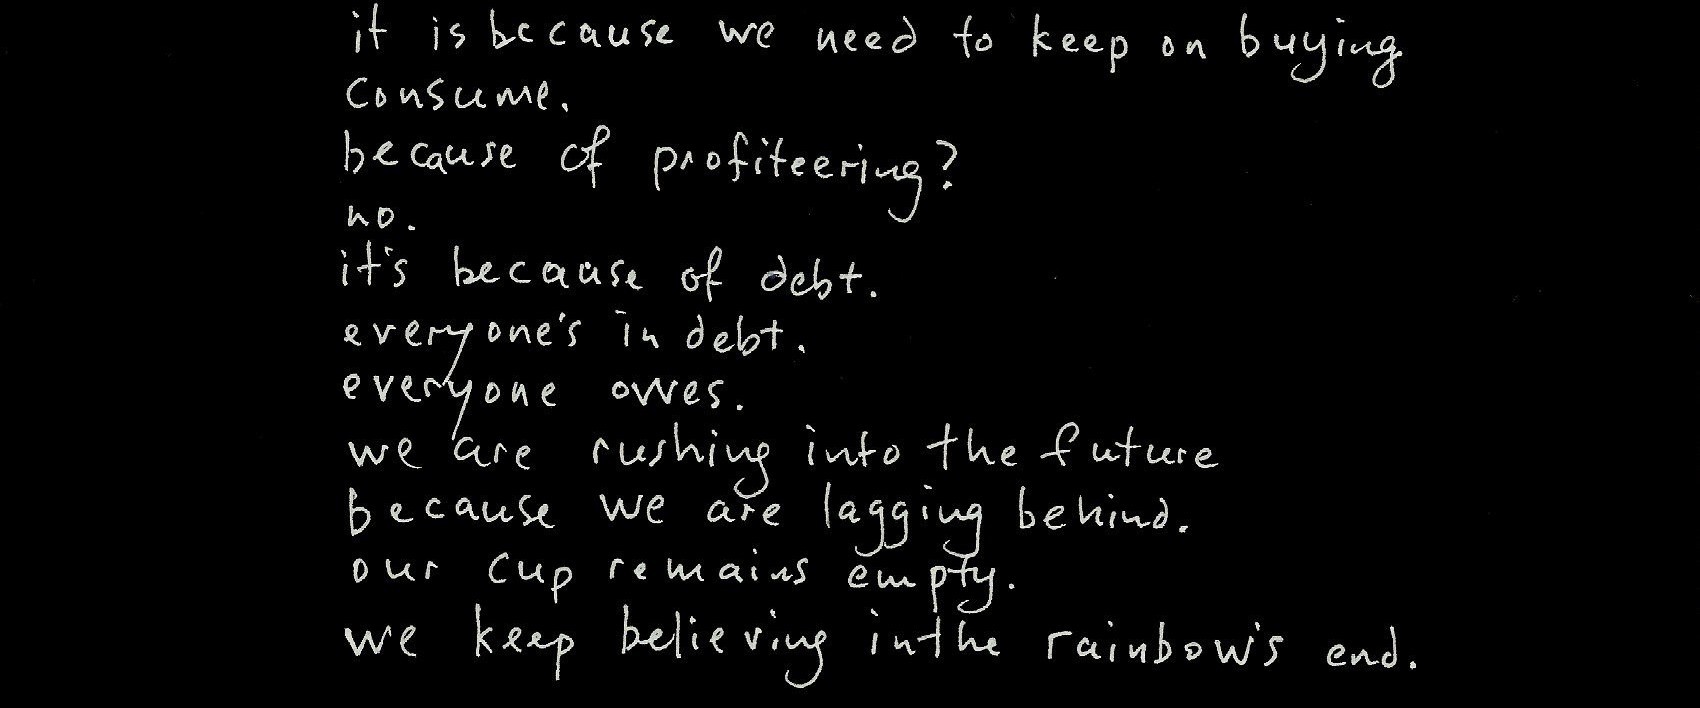 it is because we need to keep on buying
consume.
because of profiteering?
no.
it's because of debt.
everyone's in debt.
everyone owes.
we are rushing into the future
because we are lagging behind.
our cup remains empty.
we keep believing in the rainbow's end.